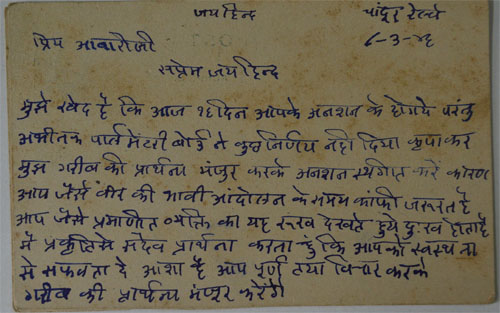 जयहिन्द चांदूर रेल्वे
८-३-४६
प्रिय आवारीजी
सप्रेम जयहिन्द
मुझे खेद है कि आज १६ दिन आपके अनशन के होगये परंतु
अभीतक पार्लमेंटरी बोर्ड ने कुछ निर्णय नही दिया कृपाकर
मुझ गरीब की प्रार्थना मंजुर करके अनशन स्थगित करें कारण
आप जैसे वीर की भावी आंदोलन के समय काफी जरूरत है
आप जैसे प्रमाणीत व्यक्ति का यह रूख देखते हुये दुःख होता है
में प्रकृतिसे सदैव प्रार्थना करता हुं कि आप को स्वस्थता
से सफलता दे आशा है आप पूर्ण तया विचार करके
गरीब की प्रार्थना मंजूर करेंगे